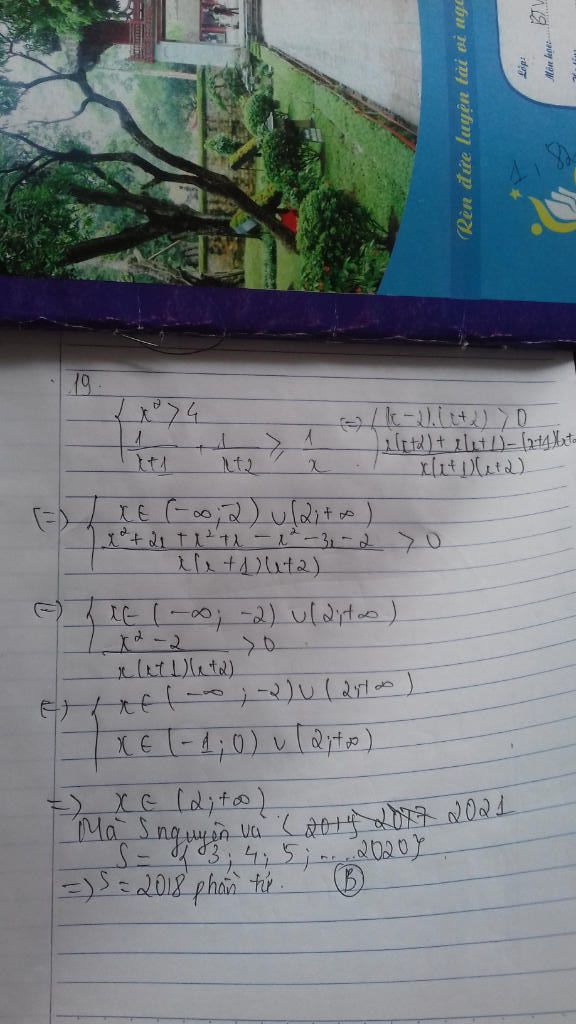 Rèn đức luyện tài vì
Lớp:
Môn học:
19.
{ x² > 4 (=) { (x-2).(x+2) > 0
1/(x+1) + 1/(x+2) ≥ 1/x (x(x+2) + x(x+1) - (x+1)(x+)/(x(x+1)(x+2))
(=) { x ∈ (-∞; -2) ∪ (2; +∞)
(x² + 2x + x² + x - x² - 3x - 2)/(x(x+1)(x+2)) > 0
(=) { x ∈ (-∞; -2) ∪ (2; +∞)
(x² - 2)/(x(x+1)(x+2)) > 0
(=) { x ∈ (-∞; -2) ∪ (2; +∞)
x ∈ (-1; 0) ∪ (2; +∞)
=) x ∈ (2; +∞)
Mà S nguyên và < 2021
S = { 3; 4; 5; .... 2020}
=) S = 2018 phần tử. (B)